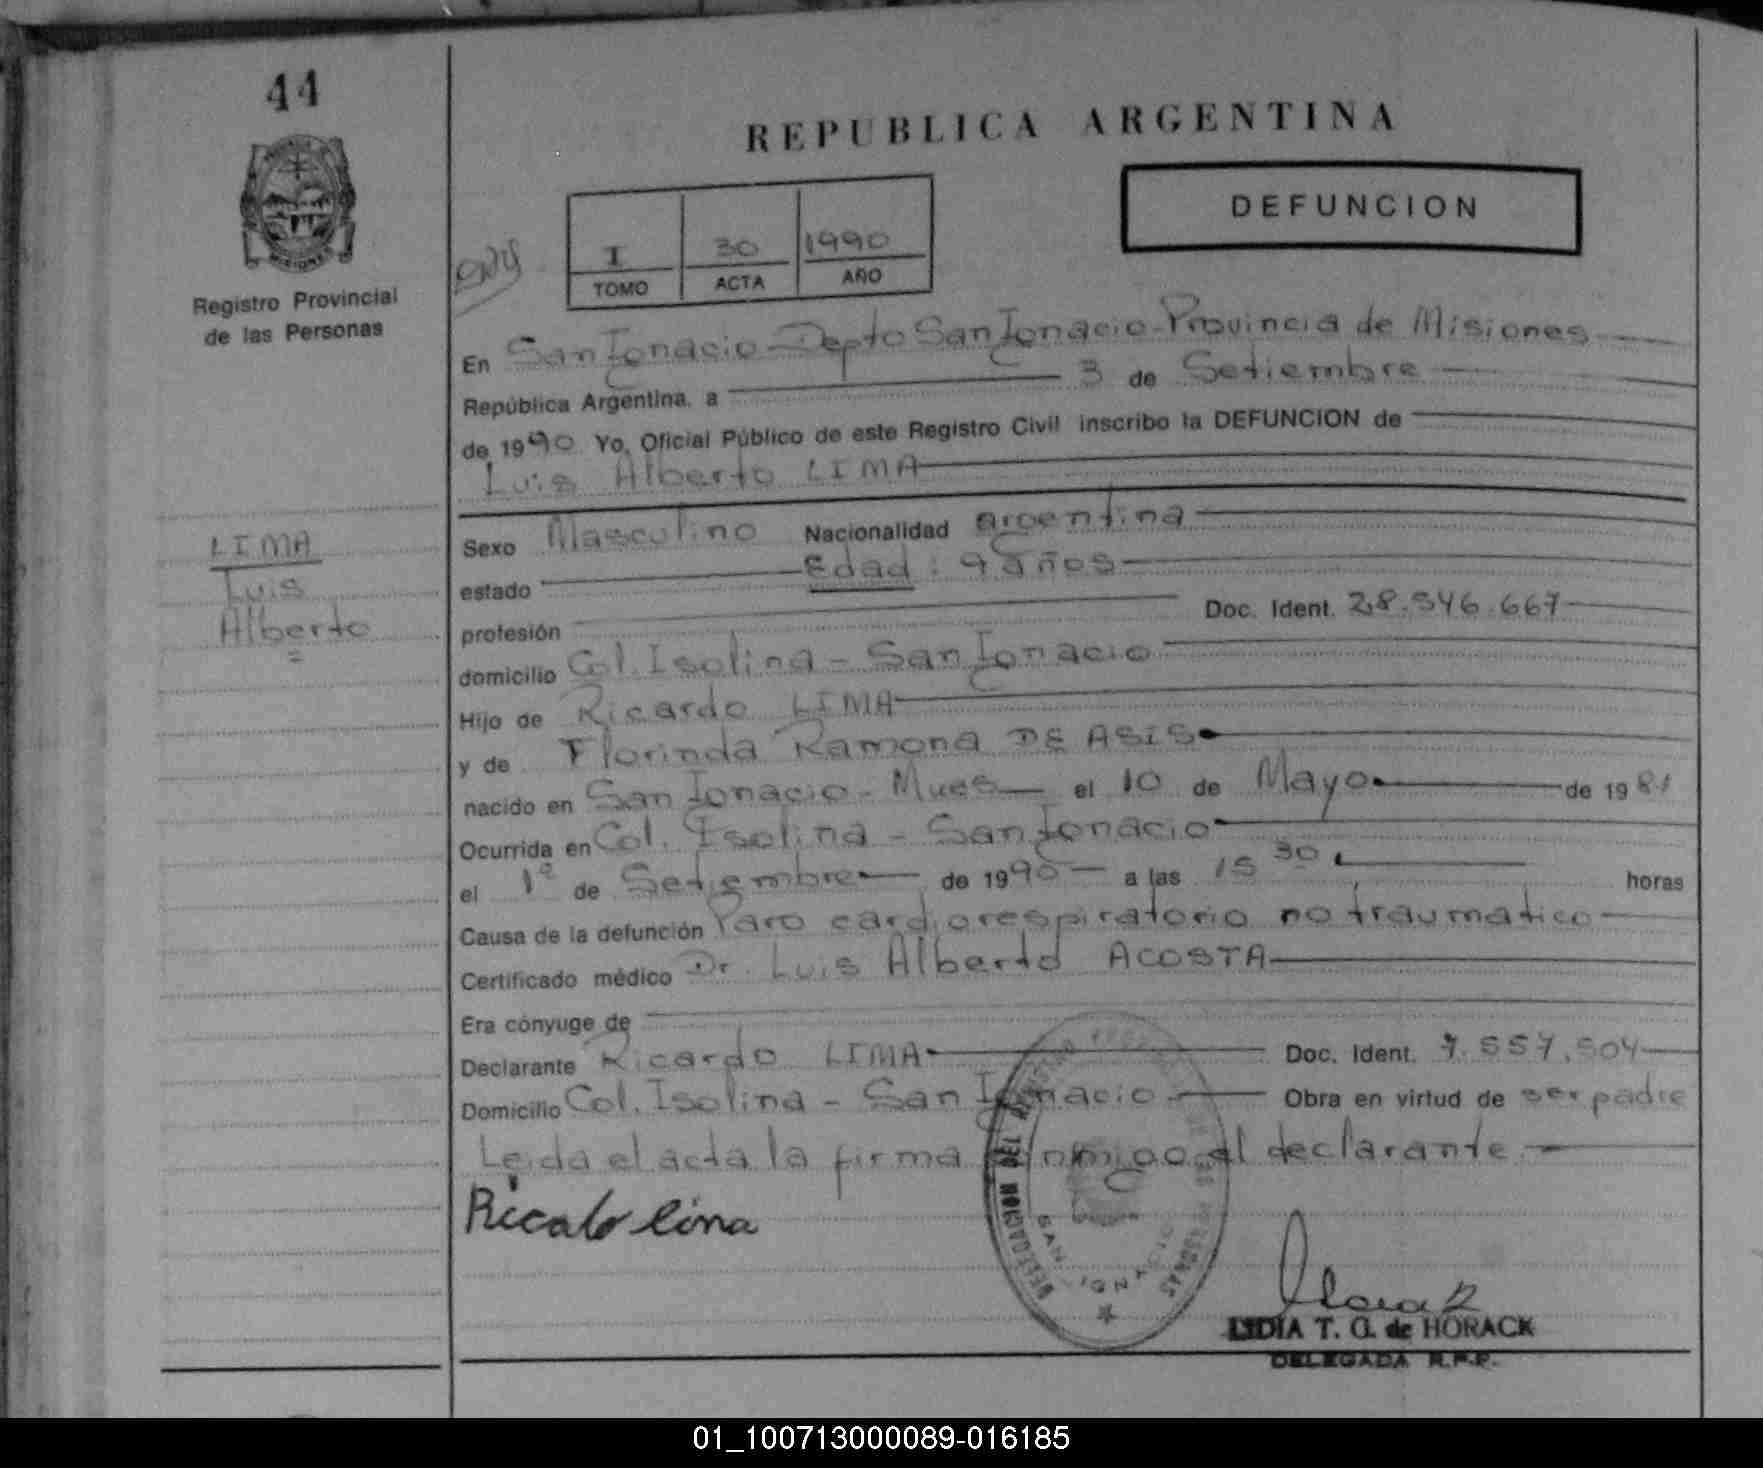 44
REPUBLICA ARGENTINA
DEFUNCION
I 30 1990
TOMO ACTA AÑO
MISIONES
Registro Provincial
de las Personas
En San Ignacio - Depto San Ignacio - Provincia de Misiones
República Argentina, a 3 de Setiembre
de 1990 Yo, Oficial Público de este Registro Civil inscribo la DEFUNCION de
Luis Alberto LIMA
LIMA
Luis
Alberto
Sexo Masculino Nacionalidad argentina
estado Edad: 9 años
profesión Doc. Ident. 28.546.667
domicilio Col. Isolina - San Ignacio
Hijo de Ricardo LIMA
y de Florinda Ramona DE ASIS
nacido en San Ignacio - Mnes el 10 de Mayo de 1981
Ocurrida en Col. Isolina - San Ignacio
el 1º de Setiembre de 1990 a las 15 30 horas
Causa de la defunción Paro cardiorespiratorio no traumatico
Certificado médico Dr. Luis Alberto ACOSTA
Era cónyuge de
Declarante Ricardo LIMA Doc. Ident. 7.557.504
Domicilio Col. Isolina - San Ignacio Obra en virtud de ser padre
Leida el acta la firma conmigo el declarante
Ricalo lima
DELEGACION DEL REGISTRO DE LAS PERSONAS
SAN IGNACIO
LIDIA T. G. de HORACK
DELEGADA R.P.P.
01_100713000089-016185